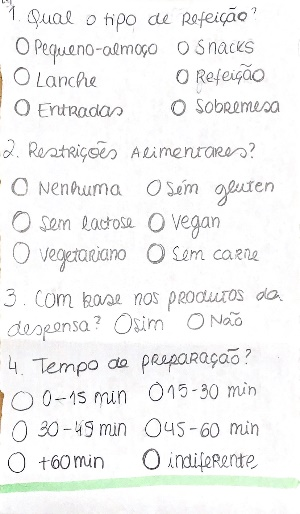 1. Qual o tipo de Refeição?
O Pequeno-almoço O Snacks
O Lanche O Refeição
O Entradas O Sobremesa
2. Restrições Alimentares?
O Nenhuma O Sem gluten
O Sem lactose O Vegan
O Vegetariano O Sem carne
3. Com base nos produtos da
despensa? O Sim O Não
4. Tempo de preparação?
O 0-15 min O 15-30 min
O 30-45 min O 45-60 min
O +60 min O indiferente